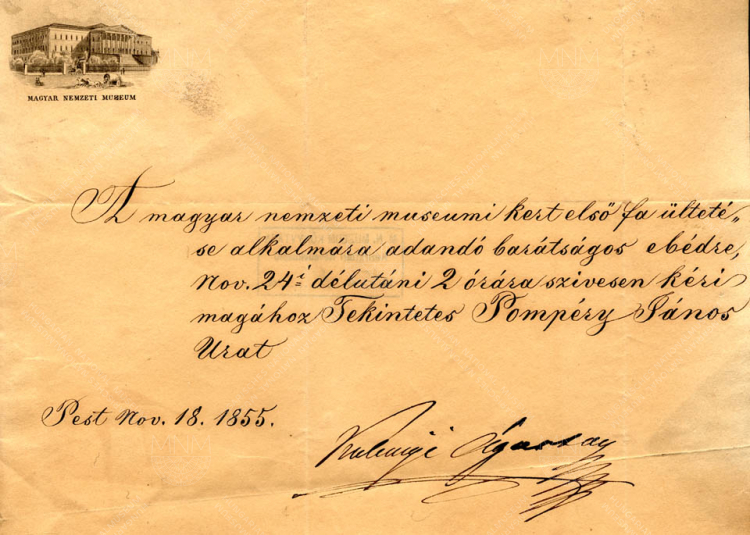 MAGYAR NEMZETI MUSEUM
A magyar nemzeti museumi kert első fa ülteté-
se alkalmára adandó barátságos ebédre,
Nov. 24i délutáni 2 órára szivesen kéri
magához Tekintetes Pompéry János
Urat
Pest Nov. 18. 1855.
Kubinyi Ágoston